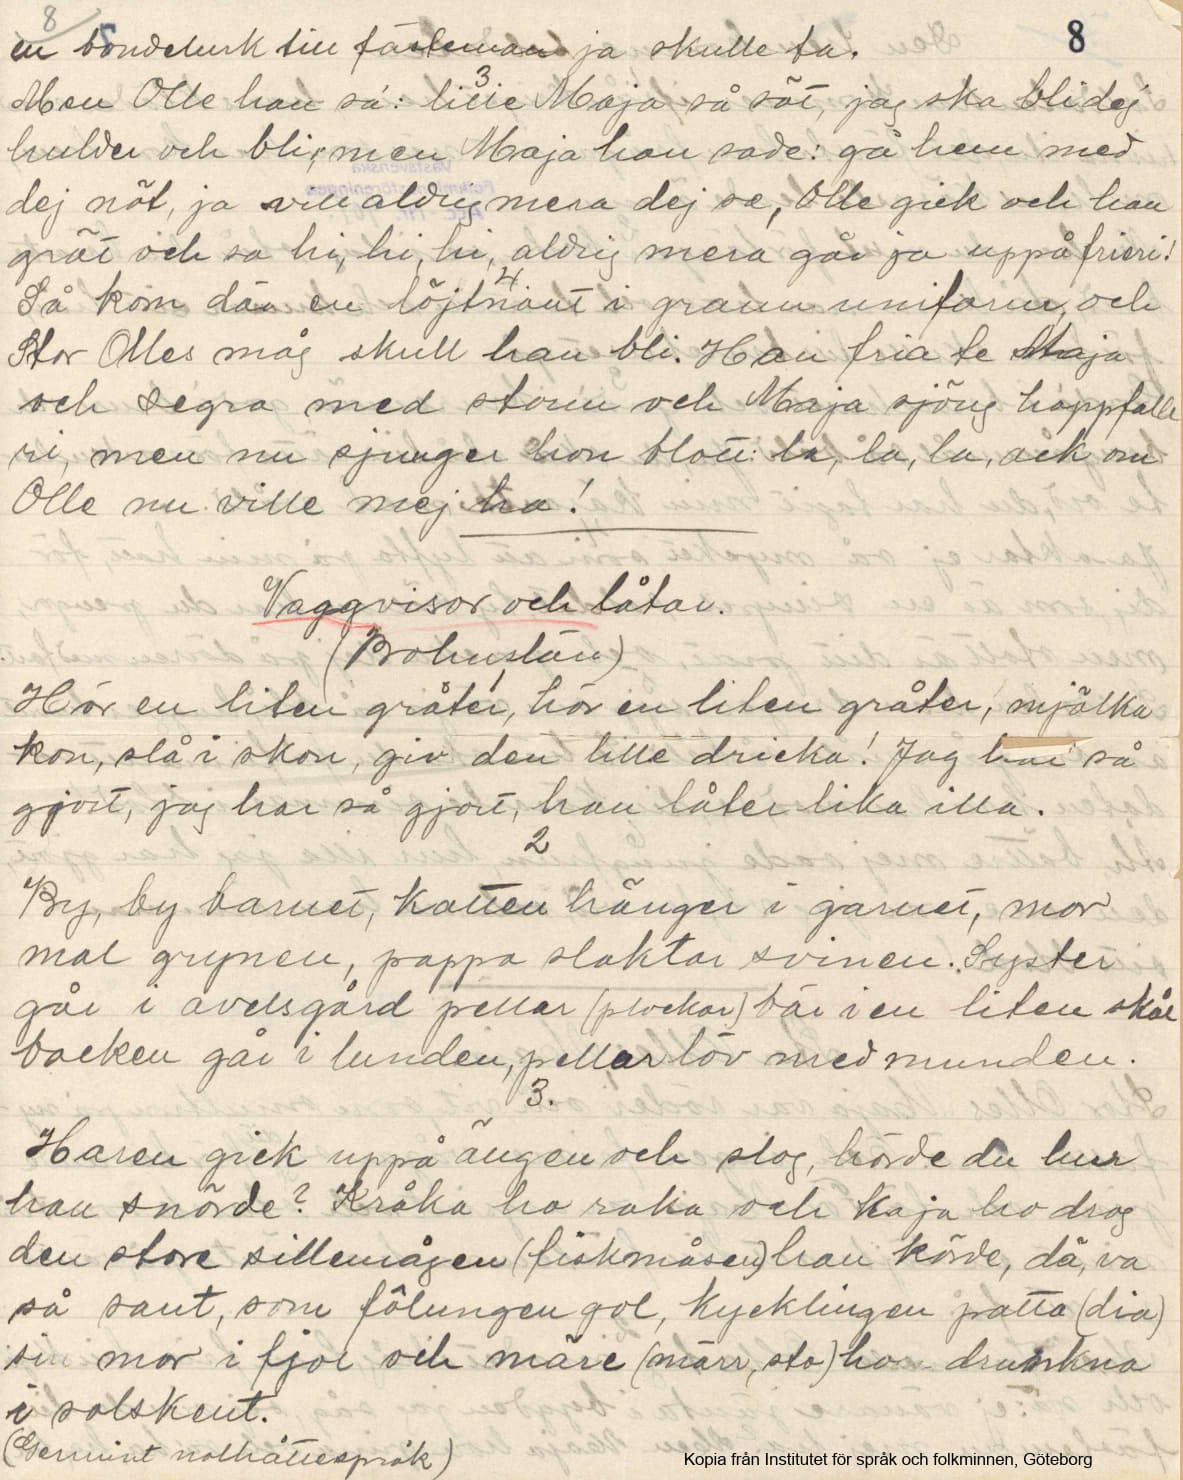 8
8
en bondelurk till fästeman ja skulle ta.
3
Men Olle han sa: lille Maja så söt, jag ska bli dej
hulder och bli, men Maja hon sade: gå hem med
dej nöt, ja vill aldrig mera dej se, Olle gick och han
grät och sa hi, hi, hi, aldrig mera går ja uppå frieri!
4
Så kom där en löjtnant i grann uniform, och
Stor Olles måg skull han bli. Han fria te Maja
och segra med storm och Maja sjöng hoppfalle
ri, men nu sjunger hon blott: la, la, la, ack om
Olle nu ville mej ha!
Vaggvisor och låtar.
(Bohuslän)
Hör en liten gråter, hör en liten gråter, mjölka
kon, slå i skon, giv den lille dricka! Jag har så
gjort, jag har så gjort, han låter lika illa.
2
By, by barnet, katten hänger i garnet, mor
mal grynen, pappa slaktar svinen. Syster
går i avelsgård pellar (plockar) bär i en liten skål
bocken går i lunden, pellar löv med munden.
3.
Haren gick uppå ängen och slog, hörde du hur
han snörde? Kråka ho raka och kaja ho drog
den store sillemågen (fiskmåsen) han körde, dä, va
så sant, som fölungen gol, kycklingen patta (dia)
sin mor i fjol och märe (märr, sto) ho drunkna
i solskent.
(Genuint nolhåttespråk)
Kopia från Institutet för språk och folkminnen, Göteborg